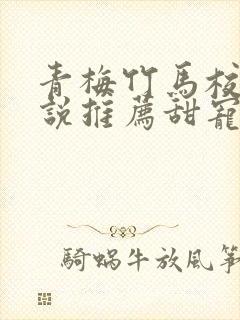 青梅竹馬校
說推薦甜寵
騎蝸牛放風箏